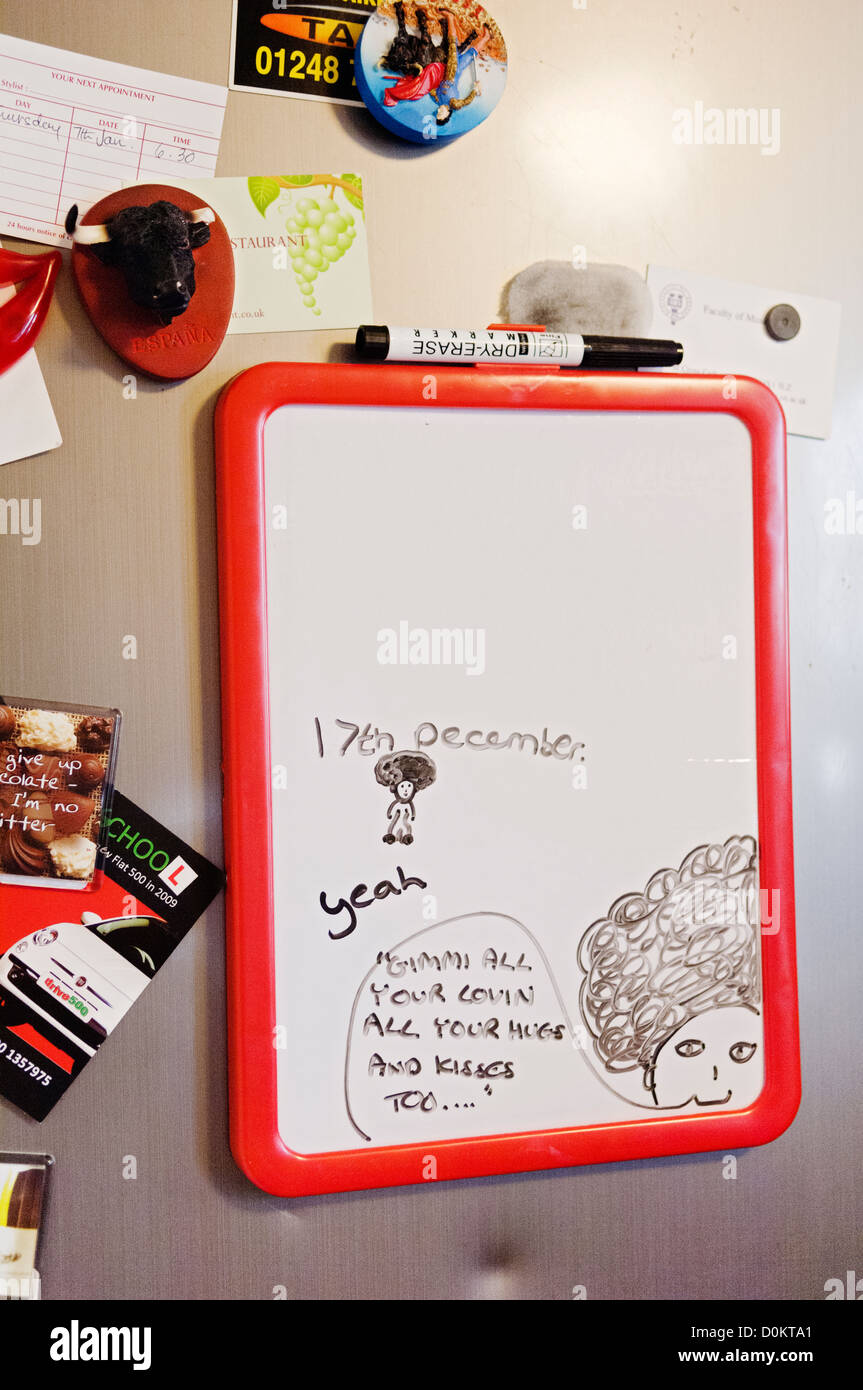 TA
01248
YOUR NEXT APPOINTMENT
Stylist :
DAY
DATE
TIME
7th Jan.
6.30
24 hours notice of
STAURANT
t.co.uk
ESPAÑA
DRY-ERASE
MARKER
Faculty of
17th December.
yeah
"GIMMI ALL
YOUR LOVIN
ALL YOUR HUGS
AND KISSES
TOO...."
give up
colate -
I'm no
itter
CHOOL
L
Fiat 500 in 2009
drive500
0 1357975
alamy
Image ID: D0KTA1
www.alamy.com